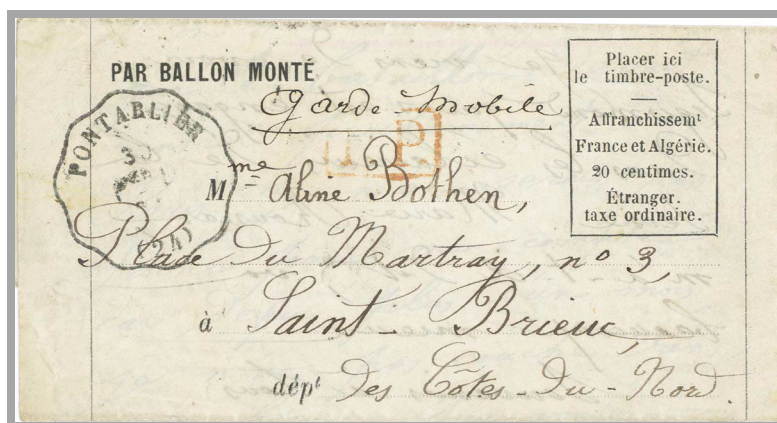 PAR BALLON MONTÉ
Garde Mobile
Placer ici
le timbre-poste.
Affranchissemt
France et Algérie.
20 centimes.
Étranger.
taxe ordinaire.
PONTARLIER
(24)
P.P.
Mme Aline Bothen,
Place du Martray, no 3,
à Saint-Brieuc,
dépt des Côtes-du-Nord.